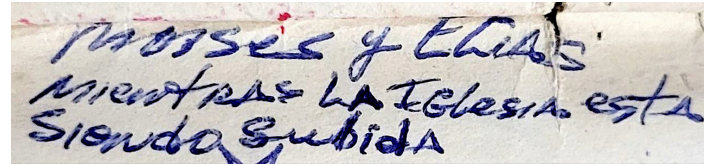 moises y Elias
mientras la Iglesia esta
Siendo Subida